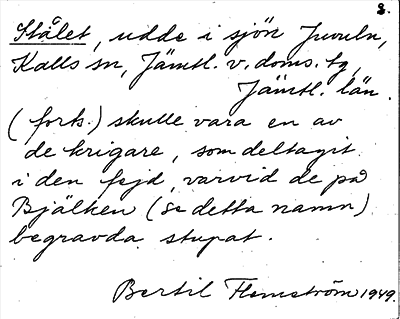 3.
Stålet, udde i sjön Juvuln,
Kalls sn, Jämtl. v. doms. tg,
Jämtl. län.
(forts.) skulle vara en av
de krigare, som deltagit
i den fejd, varvid de på
Bjälken (se detta namn)
begravda stupat.
Bertil Flemström 1949.